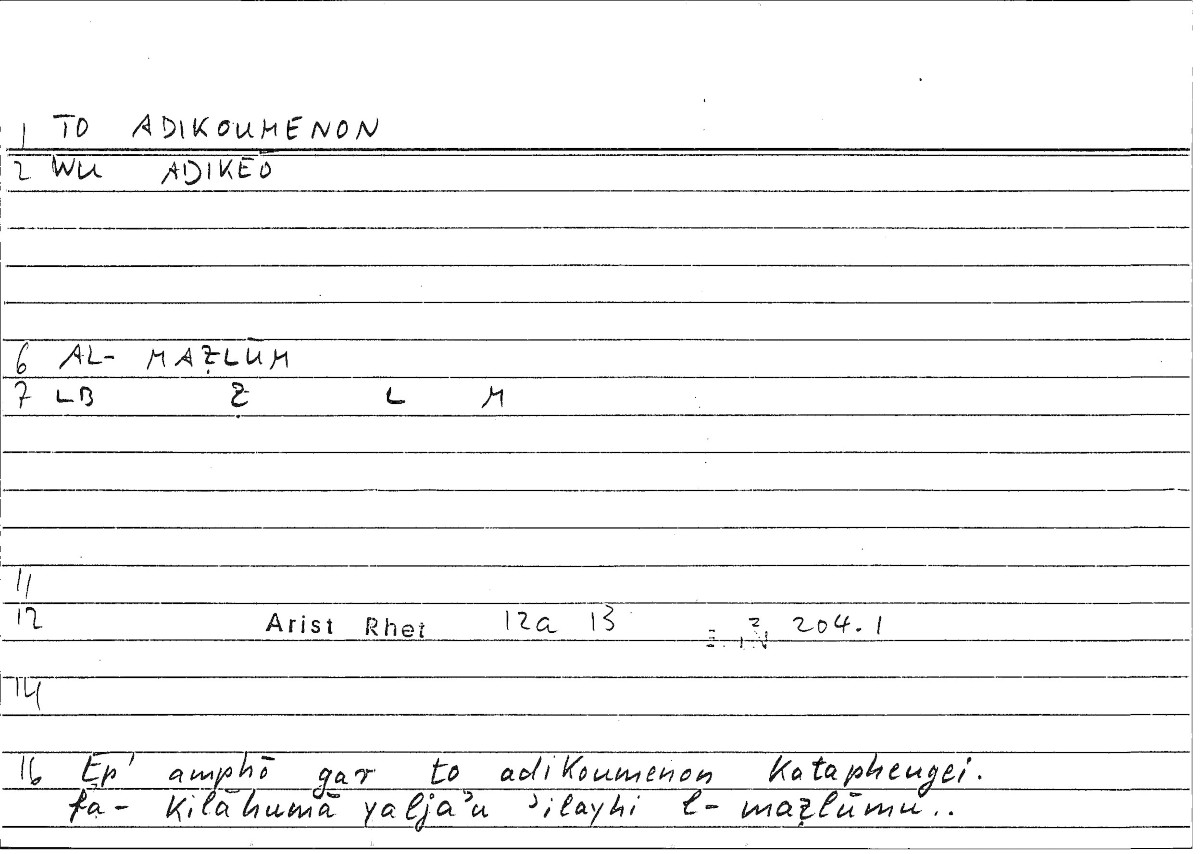 1 TO ADIKOUMENON
2 WU ADIKĒO
6 AL- MAẒLŪM
7 LB Ẓ L M
11
12 Arist Rhet 12a 13 204.1
14
16 Ep' amphō gar to adikoumenon katapheugei.
fa- kilāhumā yalja'u 'ilayhi l- maẓlūmu..